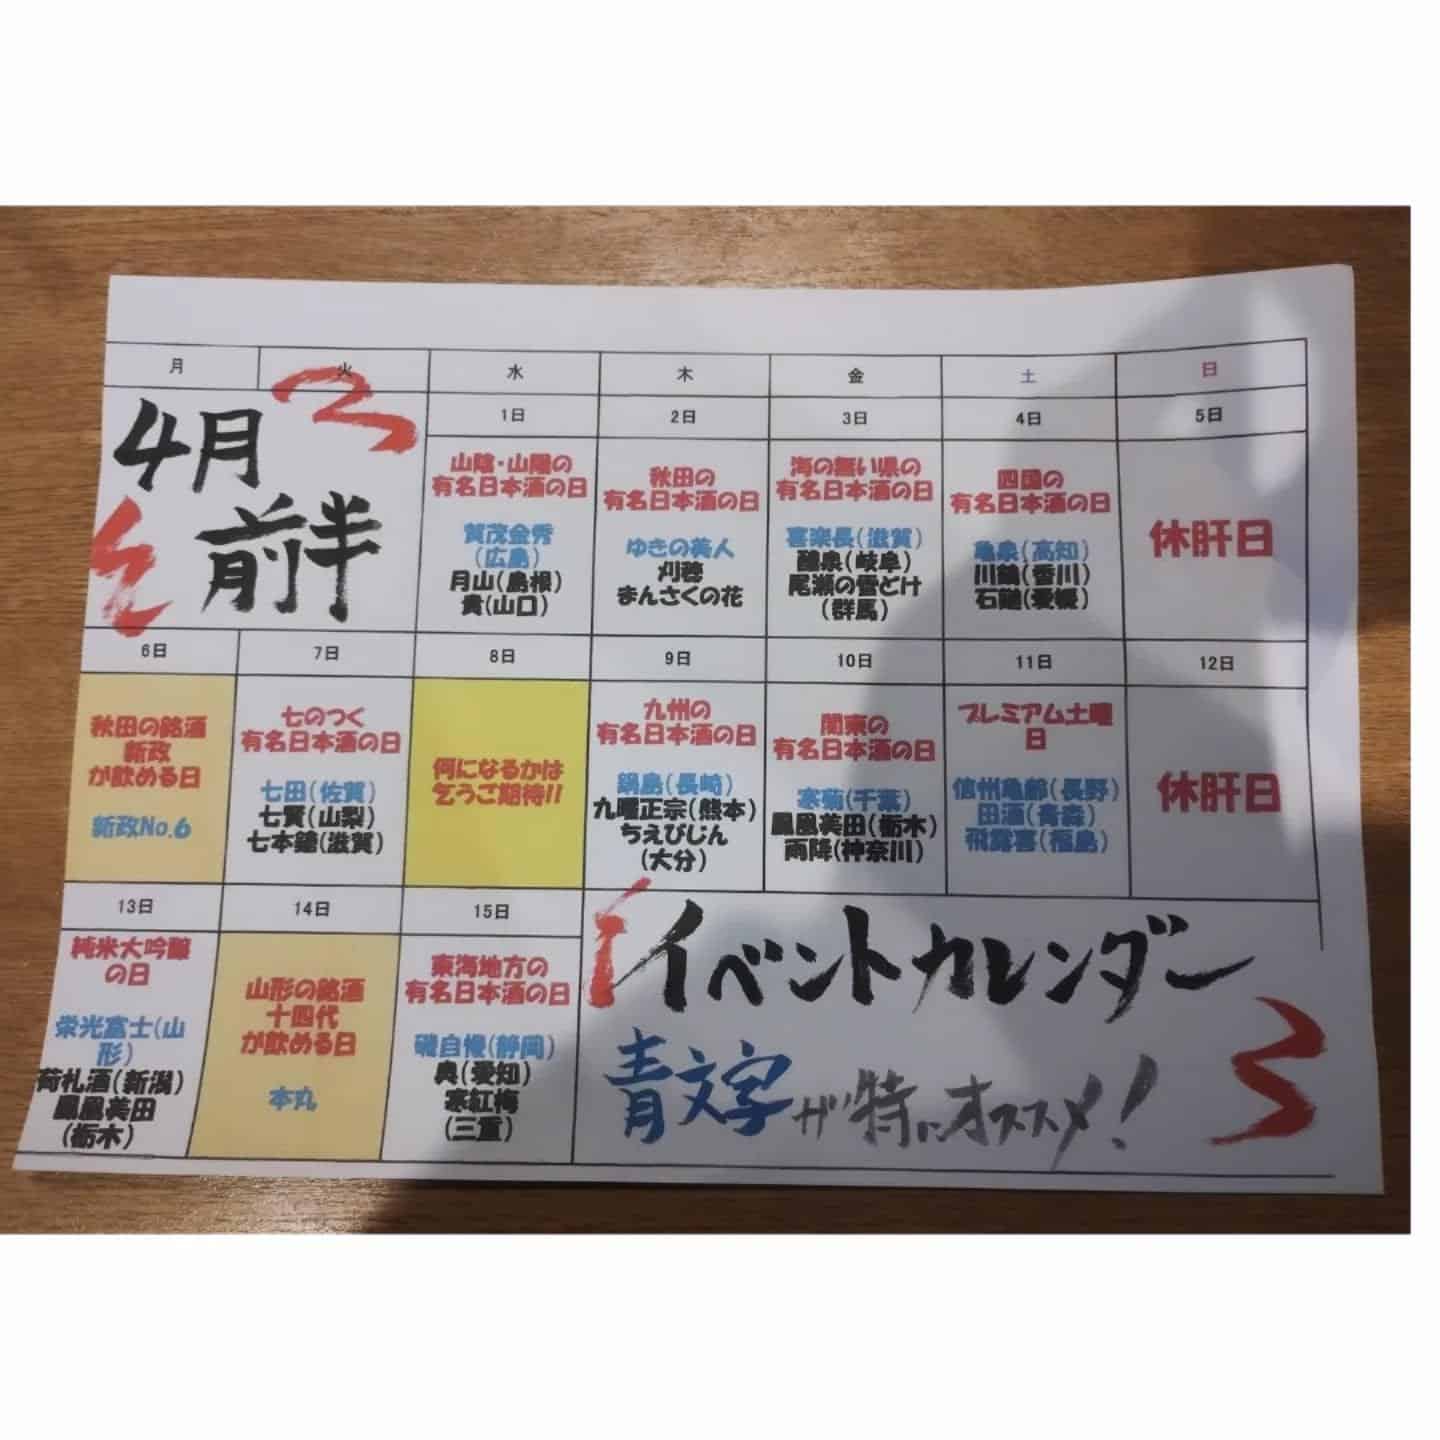 月
火
水
木
金
土
日
4月
前半
1日
2日
3日
4日
5日
山陰・山陽の
有名日本酒の日
賀茂金秀
(広島)
月山(島根)
貴(山口)
秋田の
有名日本酒の日
ゆきの美人
刈穂
まんさくの花
海の無い県の
有名日本酒の日
喜楽長(滋賀)
醴泉(岐阜)
尾瀬の雪どけ
(群馬)
四国の
有名日本酒の日
亀泉(高知)
川鶴(香川)
石鎚(愛媛)
休肝日
6日
7日
8日
9日
10日
11日
12日
秋田の銘酒
新政
が飲める日
新政No.6
七のつく
有名日本酒の日
七田(佐賀)
七賢(山梨)
七本鎗(滋賀)
何になるかは
乞うご期待!!
九州の
有名日本酒の日
鍋島(長崎)
九曜正宗(熊本)
ちえびじん
(大分)
関東の
有名日本酒の日
寒菊(千葉)
鳳凰美田(栃木)
雨降(神奈川)
プレミアム土曜
日
信州亀齢(長野)
田酒(青森)
飛露喜(福島)
休肝日
13日
14日
15日
純米大吟醸
の日
栄光冨士(山
形)
荷札酒(新潟)
鳳凰美田
(栃木)
山形の銘酒
十四代
が飲める日
本丸
東海地方の
有名日本酒の日
磯自慢(静岡)
奥(愛知)
寒紅梅
(三重)
イベントカレンダー
青文字が特にオススメ!